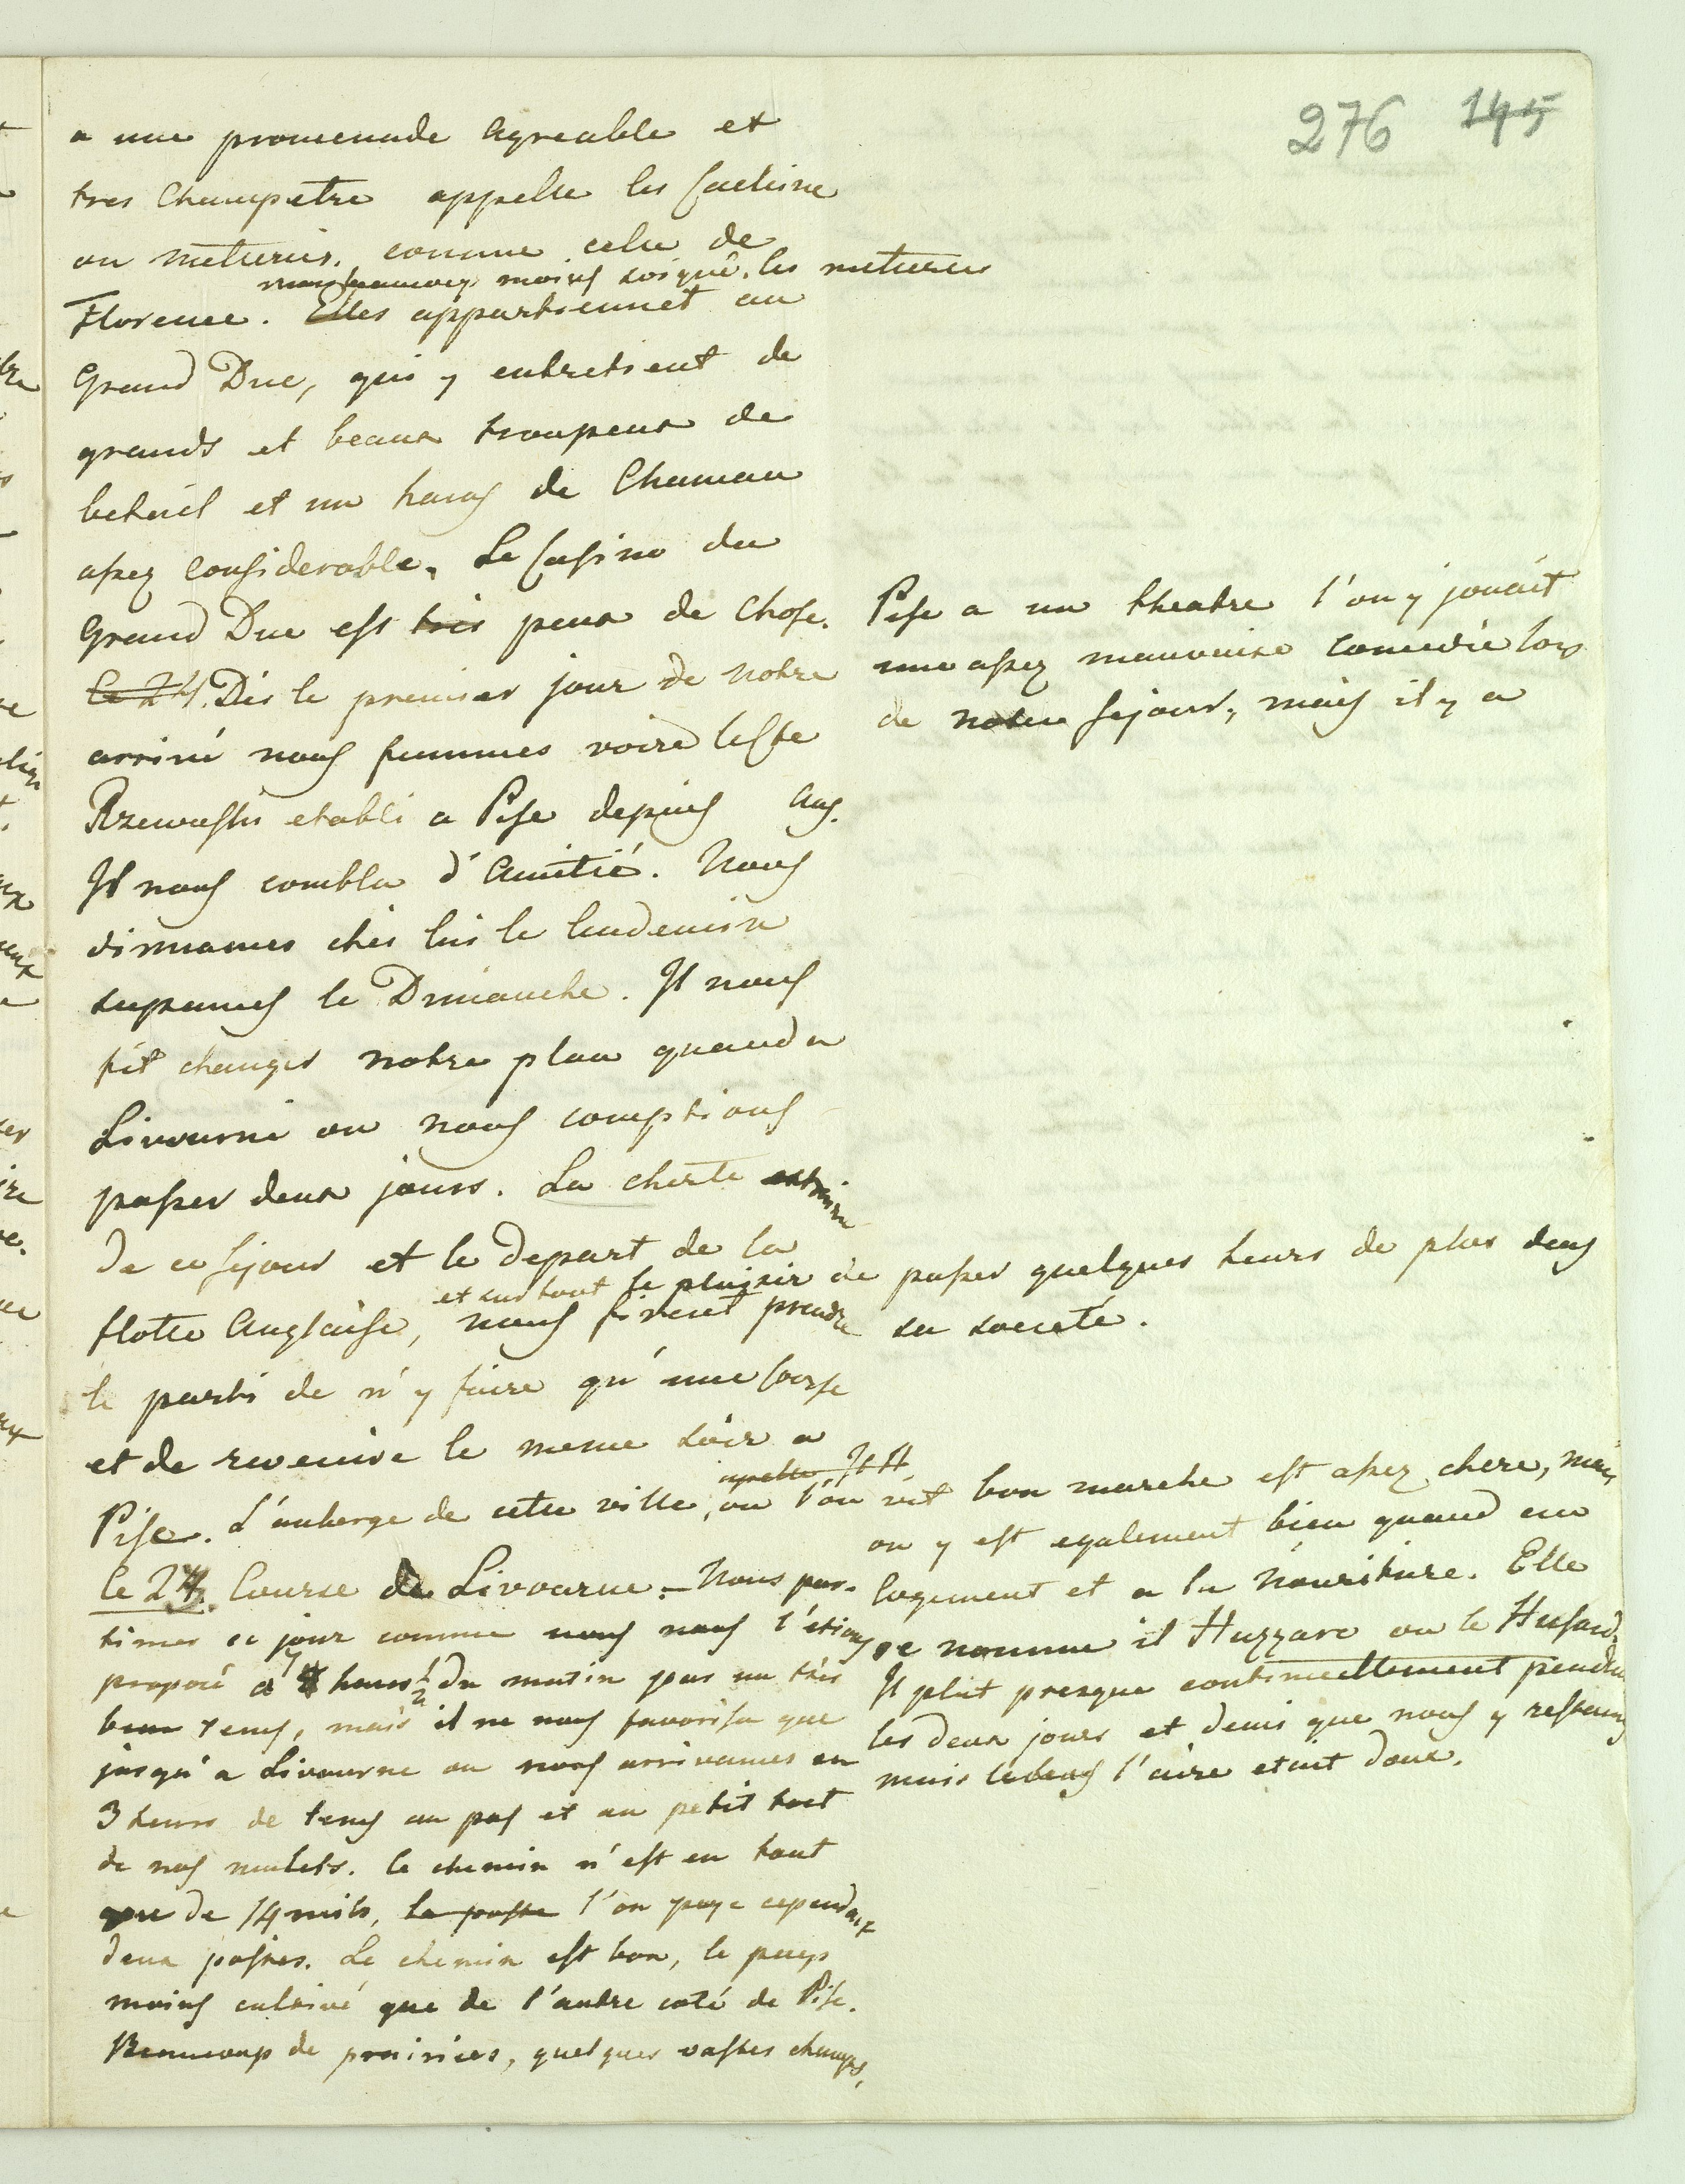 276 145
a une promenade agreable et
tres Champetre appelle les Cachine
ou meteries. comme celle de
mais beaucoup moins soigné. les meteries
Florence. Elles appartiennet au
Grand Duc, qui y entretient de
grands et beaux troupeux de
beteil et un haras de Chameau
assez Considerable. Le Casino du
Grand Duc est tres peux de Chose.
Le 24. Dès le premier jour de notre
arrivé nous fummes voire le Cte
Rzewuski etabli a Pise depuis Ans.
Il nous combla d'Amitié. Nous
dinnames chés lui le lendemin
supames le Dimanche. Il nous
fit changer notre plan quand a
Livourne ou nous comptions
passer deux jours. La cherte extreme
de ce sejour et le depart de la
et surtout le plaisir de passer quelques heurs de plus dens
flotte Anglaise, nous firent prendre
sa societé.
le parti de n'y faire qu'une Course
et de revenire le meme soir a
Pise. L'auberge de cette ville, ou l'on vit bon marche est assez chere, mais
on y est egalement bien quand au
logement et a la nouriture. Elle
se nomme il Huzzaro ou le Husard.
Il plut presque continuellement pendent
les deux jours et demi que nous y restames
mais le tens l'aire etait doux.
Pise a un theatre l'on y jouait
une assez mauvaise comedie lors
de notre sejour, mais il y a
le 24. Course de Livourne. Nous par-
times ce jour comme nous nous l'étions
proposé a 7 heurs ½ du matin par un très
beau tems, mais il ne nous favorisa que
jusqu'a Livourne ou nous arrivames en
3 heurs de tems au pas et au petit trot
de nos mulets. le chemin n'est en tout
que de 14 mils, la poste l'on paye cependant
deux postes. Le chemin est bon, le pays
moins cultivé que de l'autre coté de Pise.
Beaucoup de prairies, quelques vastes champs,